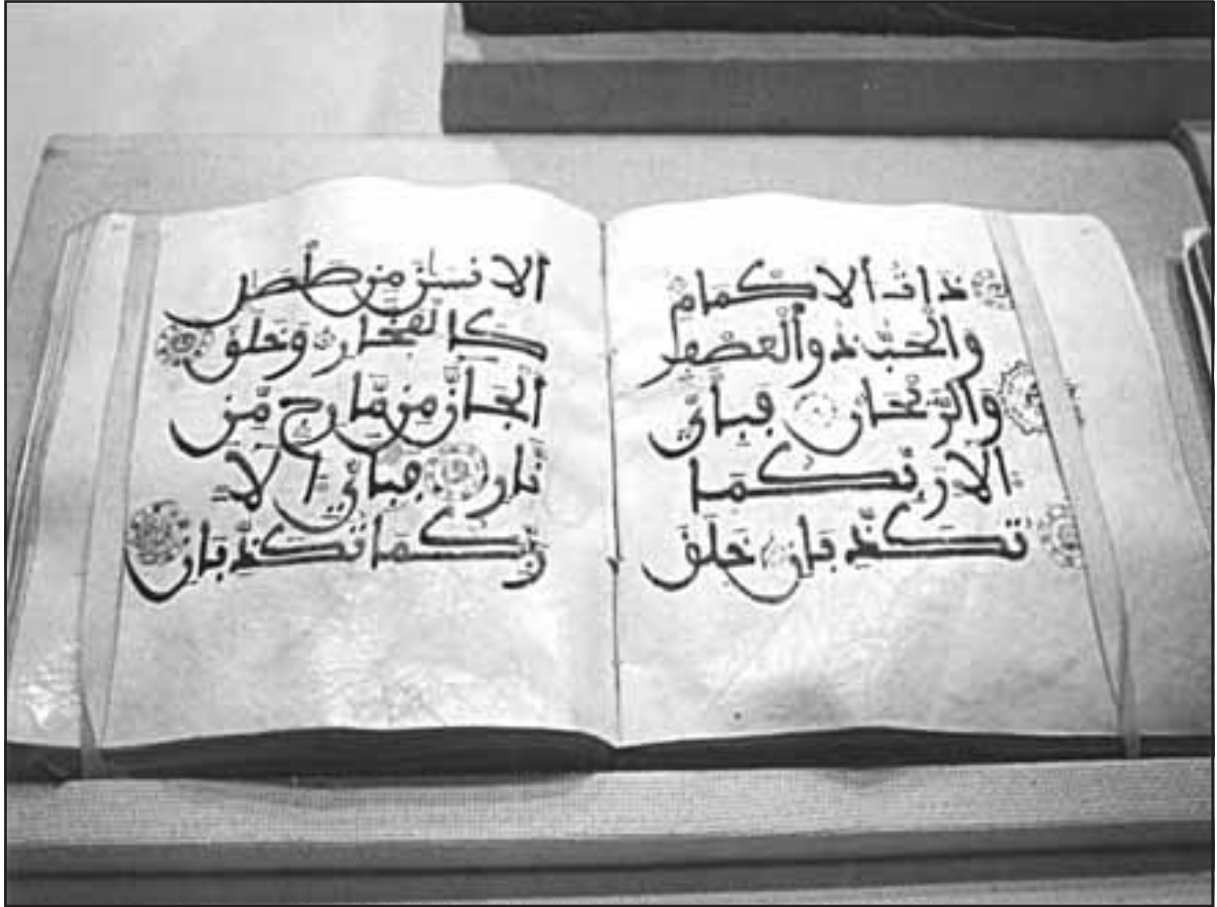 ذات الاكمام
والحبّ ذو العصف
والرّيحان فبأيّ
الاء ربّكما
تكذّبان خلق
الانسن من صلصل
كالفخّار وخلق
الجانّ من مّارج مّن
نّار فبأيّ الاء
ربّكما تكذّبان